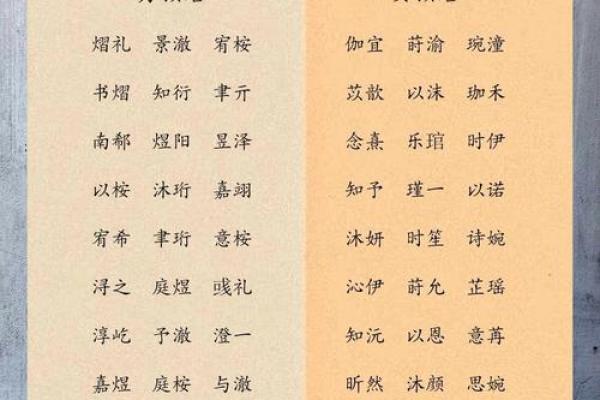 熠礼 景澈 宥桉
书熠 知衍 聿亓
南郗 煜阳 昱泽
以桉 沐珩 嘉翊
宥希 聿珩 意桉
浔之 庭煜 彧礼
淳屹 予澈 澄一
嘉煜 庭桉 与澈
伽宜 莳渝 琬潼
苡歆 以沫 珈禾
念熹 乐琯 时伊
知予 瑾一 以诺
沐妍 时笙 诗婉
沁伊 莳允 芷瑶
知沅 以恩 意苒
昕然 沐颜 思婉